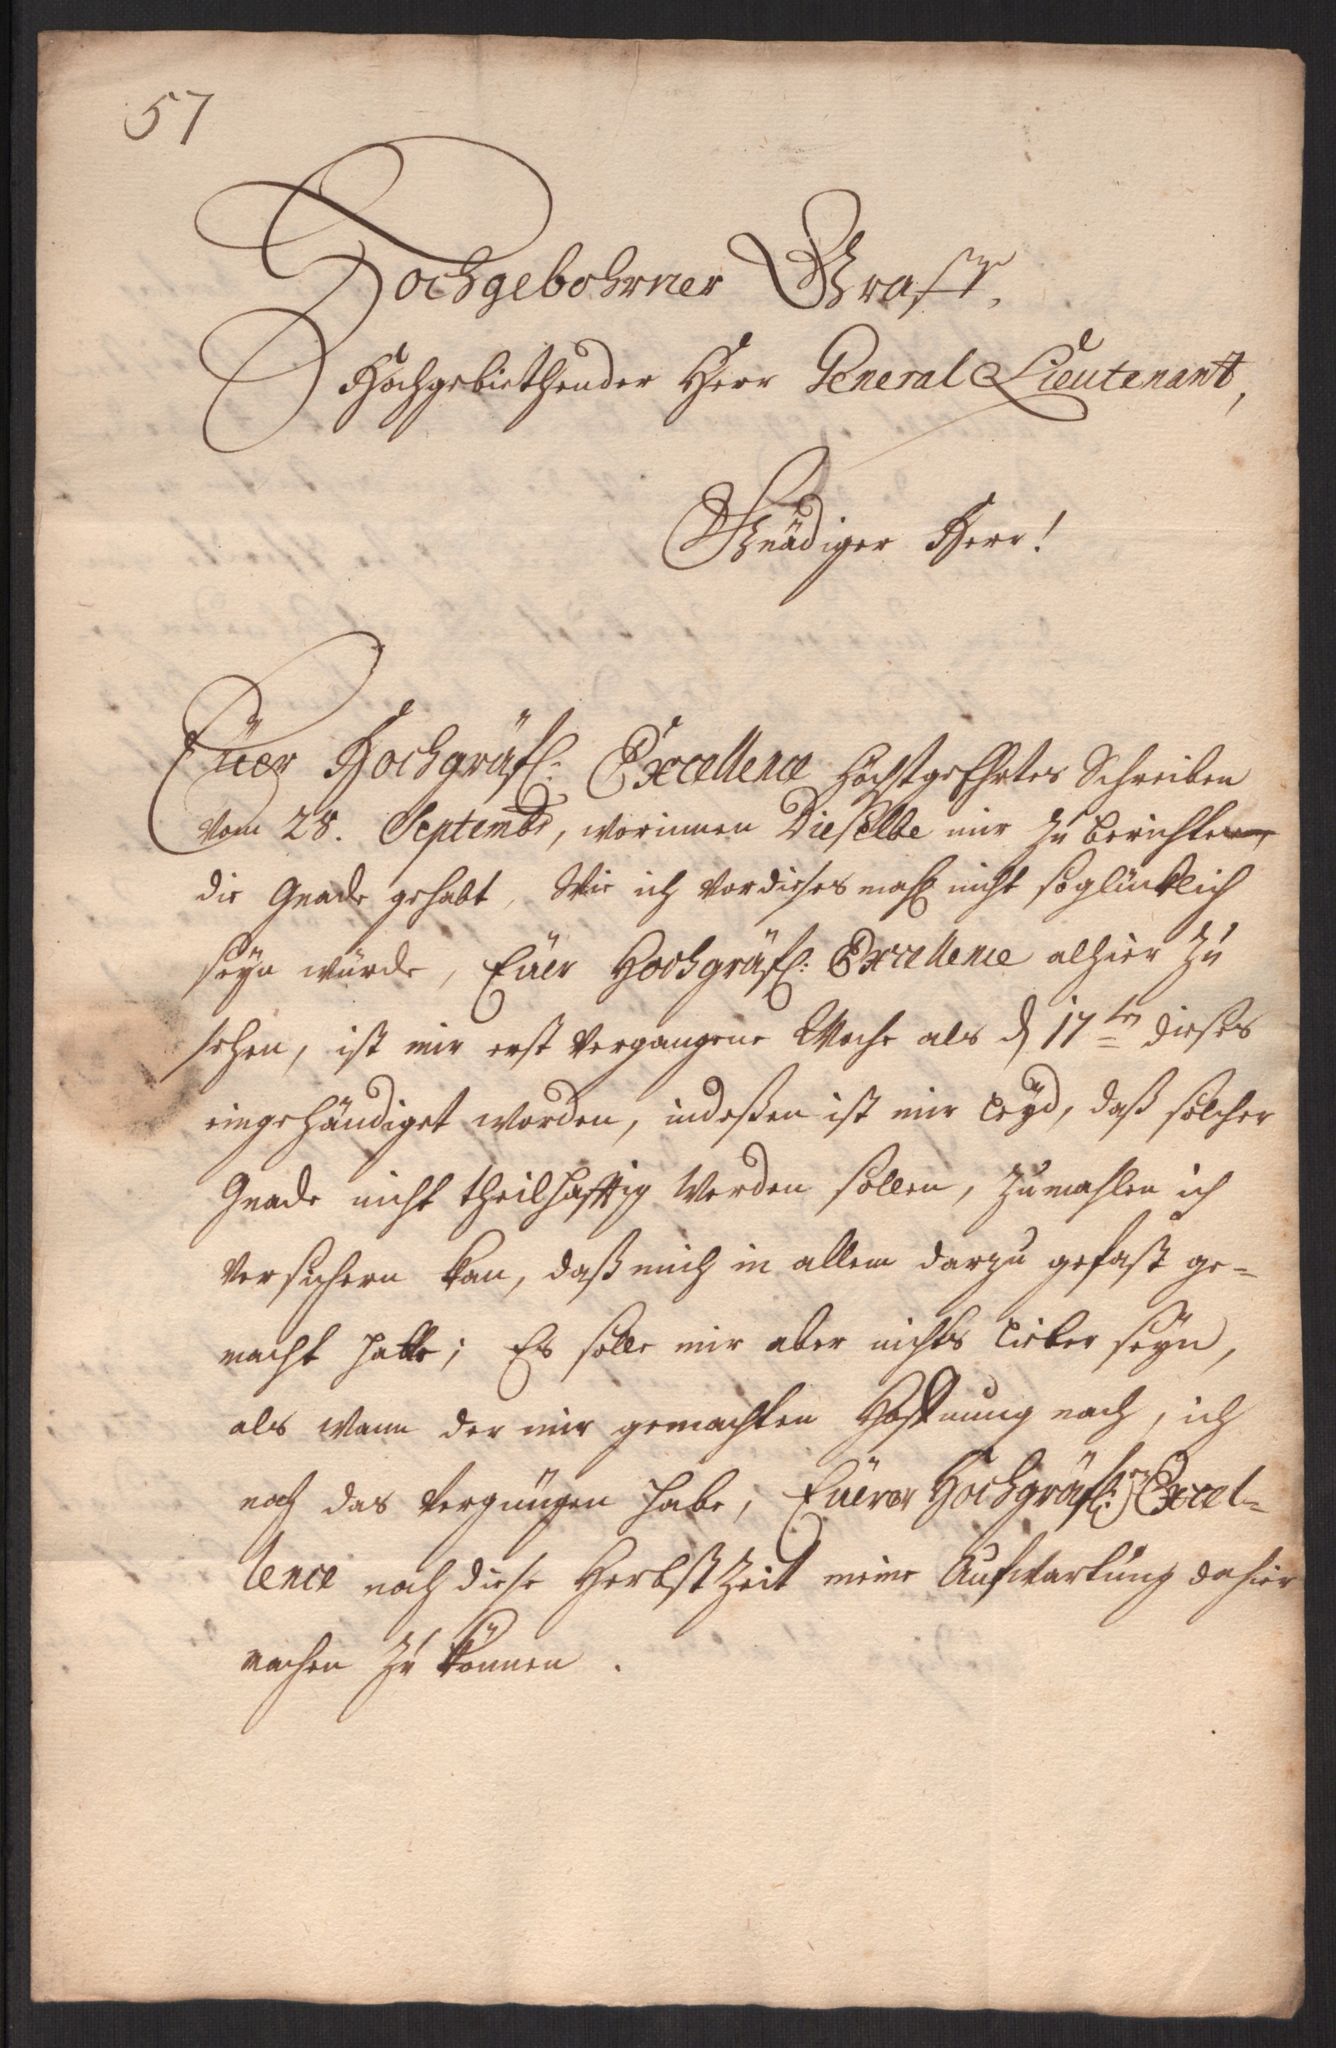 57
Hochgebohrner Graff,
Hochgebiethender Herr General Lieutenant,
Gnädiger Herr!
Eüer Hochgräfl: Excellence höchstgeEhrtes Schreiben
vom 28. Septembr, worinnen Dieselbe mir zu berichten
die Gnade gehabt, Wie ich vor dieses mahl nicht so glücklich
seyn würde, Eüer Hochgräfl: Excellence alhier zu
sehen, ist mir erst vergangene Woche als d 17ten dieses
eingehändiget worden, indeßen ist mir leyd, daß solcher
Gnade nicht theilhafftig werden sollen, zumahlen ich
versichern kan, daß mich in allem darzu gefast ge=
macht hatte; Es solle mir aber nichts lieber seyn,
als wann der mir gemachten Hoffnung nach, ich
noch das Vergnügen habe, Eüerer Hochgräfl: Excel=
lence noch diese Herbst Zeit meine Aufwartung dahier
machen zu können.